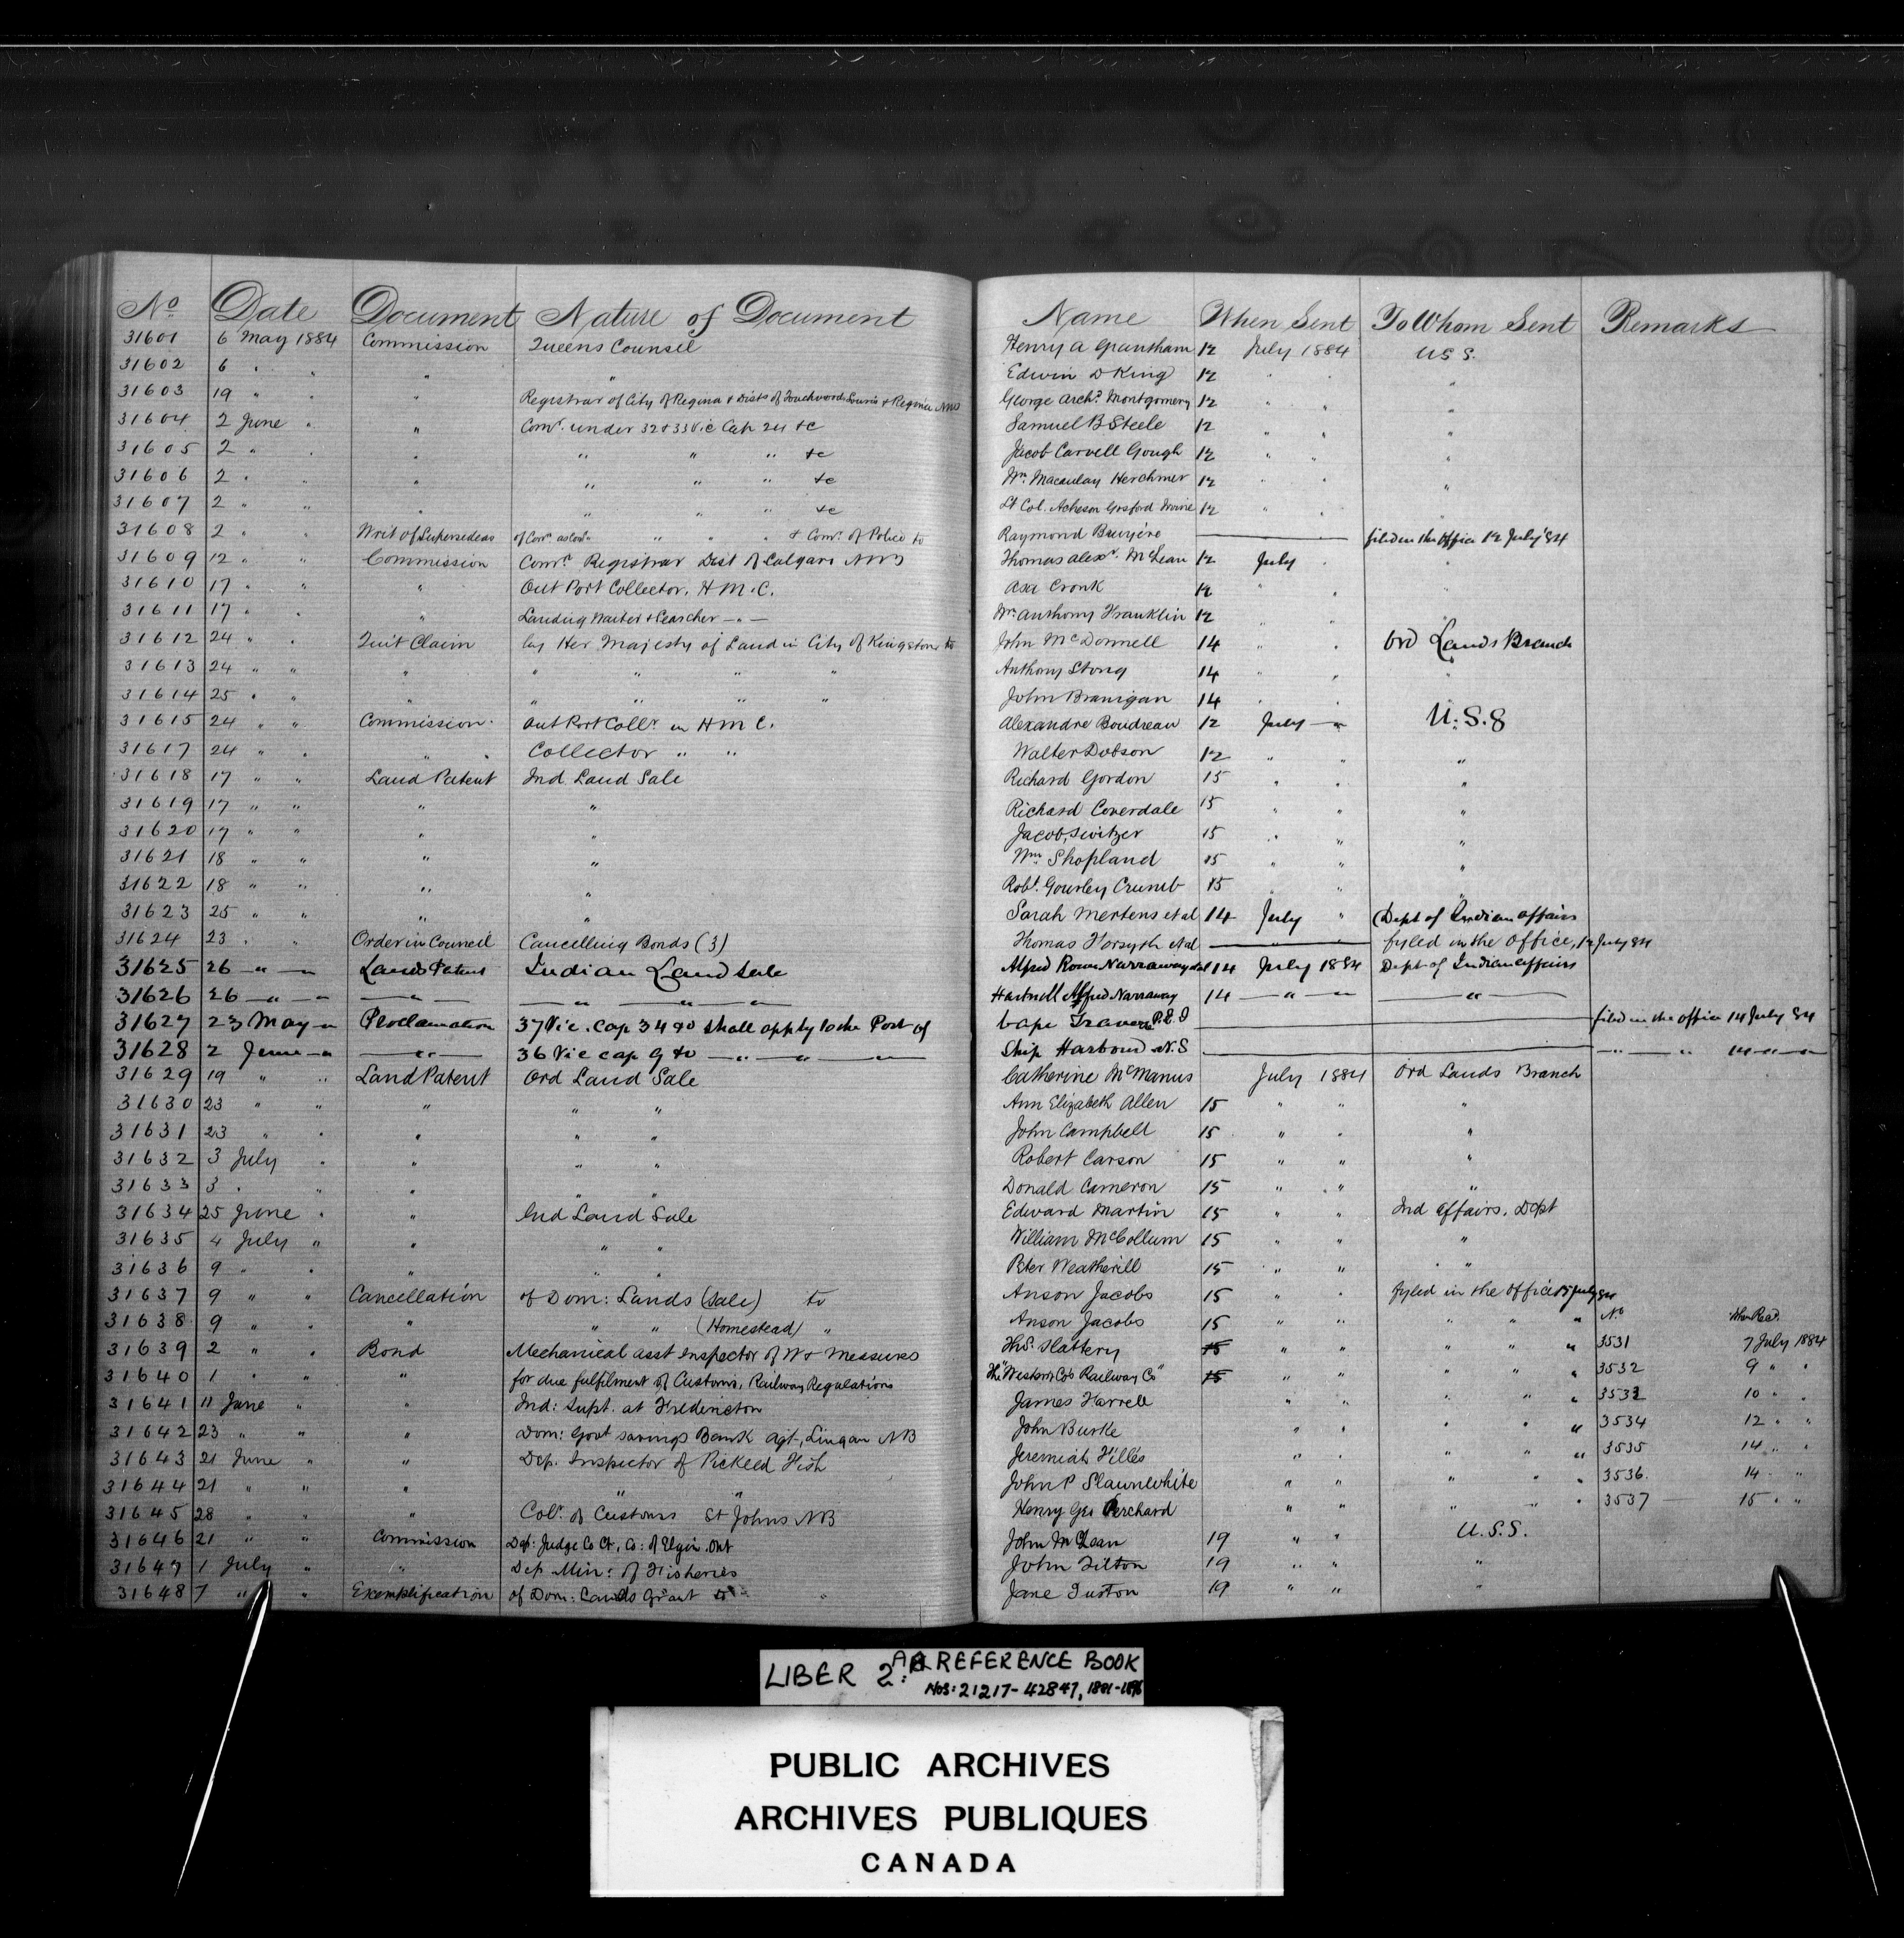 No Date Document Nature of Document Name When Sent To Whom Sent Remarks
31601 6 May 1884 Commission Queens Counsel Henry A Grantham 12 July 1884 U S S.
31602 6 " " " " Edwin D King 12 " " "
31603 19 " " " Registrar of City of Regina & Dists of Touchwood Souris & Regina NWS George Archd Montgomery 12 " " "
31604 2 June " " Comr. under 32 & 33 Vic Cap 24 &c Samuel B Steele 12 " " "
31605 2 " " " " " " &c Jacob Carvell Gough 12 " " "
31606 2 " " " " " " &c Wm. Macaulay Herchmer 12 " " "
31607 2 " " " " " " &c Lt Col. Acheson Gosford Irvine 12 " "
31608 2 " " Writ of Supersedeas of Comn " " " & Comr. of Police to Raymond Bruyère filed in the office 12 July '84
31609 12 " " Commission Comn Registrar Dist of Calgary NWS Thomas Alexr. McLean 12 July " "
31610 17 " " " Out Port Collector, H.M.C. Asa Cronk 12 " " "
31611 17 " " " Landing Waiter & Searcher — " — Wm Anthony Franklin 12 " " "
31612 24 " " Quit Claim by Her Majesty of Land in City of Kingston to John McDonnell 14 " " Ord Lands Branch
31613 24 " " " " " " " Anthony Stong 14 " " "
31614 25 " " " " " " " John Branigan 14 " "
31615 24 " " Commission. Out Port Collr. in H M C. Alexandre Boudreau 12 July — " U.S.S
31617 24 " " " " Collector " " Walter Dobson 12 " " "
31618 17 " " Land Patent Ind. Land Sale Richard Gordon 15 " " "
31619 17 " " " " Richard Coverdale 15 " " "
31620 17 " " " " Jacob Switzer 15 " " "
31621 18 " " " " Wm Shopland 15 " " "
31622 18 " " " " Robt. Gourley Crumb 15 " " "
31623 25 " " " " Sarah Mertens et al 14 July " Dept of Indian affairs
31624 23 " " Order in Council Cancelling Bonds (3) Thomas Forsyth et al " " fyled in the office, 12 July 84
31625 26 — " — " Land Patent Indian Land Sale Alfred Rowe Narraway et al 14 July 1884 Dept of Indian affairs
31626 26 — " — " — " — — " — " — " — Hartnoll Alfred Narraway 14 — " — " — " —
31627 23 May — " Proclamation 37 Vic. Cap 34 &c shall apply to the Port of Cape Traverse P.E.I filed in the office 14 July 84
31628 2 June — " — " — 36 Vic cap 9 &c — " — " — " — Ship Harbour N.S — " — " 14 — " — "
31629 19 " " Land Patent Ord Land Sale Catherine McManus July 1884 Ord Lands Branch
31630 23 " " " " " Ann Elizabeth Allen 15 " " "
31631 23 " " " " " John Campbell 15 " " "
31632 3 July " " " " Robert Carson 15 " " "
31633 3 " " " " " Donald Cameron 15 " " "
31634 25 June " " Ind Land Sale Edward Martin 15 " " Ind Affairs. Dept
31635 4 July " " " " William McCollum 15 " " "
31636 9 " " " " " Peter Weatherill 15 " " " "
31637 9 " " Cancellation of Dom: Lands (Sale) to Anson Jacobs 15 " " fyled in the office 15 July 84
31638 9 " " " " " (Homestead) " Anson Jacobs 15 " " " " " No When Recd.
31639 2 " " Bond Mechanical asst Inspector of W & Measures Hy S. Slattery 15 " " " " " 3531 7 July 1884
31640 1 " " " for due fulfilment of Customs, Railway Regulations The "Western Co's Railway Co" 15 " " " " " 3532 9 " "
31641 11 June " " Ind: Supt. at Fredericton James Farrell " " " " " 3533 10 " "
31642 23 " " " Dom: Govt savings Bank Agt, Lingan NB John Burke " " " " " 3534 12 " "
31643 21 June " " Dep. Inspector of Pickled Fish Jeremiah Hilles " " " " " 3535 14 " "
31644 21 " " " " " John P Slaunwhite " " " " " 3536 14 " "
31645 28 " " " Colr. of Customs St Johns NB Henry Geo Perchard " " " " " 3537 15 " "
31646 21 " " Commission Dep: Judge Co Ct, Co: of Elgin. Ont John McLean 19 " " U.S.S.
31647 1 July " " Dep Min: of Fisheries John Tilton 19 " " "
31648 7 " " Exemplification of Dom: Lands Grant to Jane Tuston 19 " " "
LIBER 2: REFERENCE BOOK
NOS: 21217-42847, 1881-1896
PUBLIC ARCHIVES
ARCHIVES PUBLIQUES
CANADA